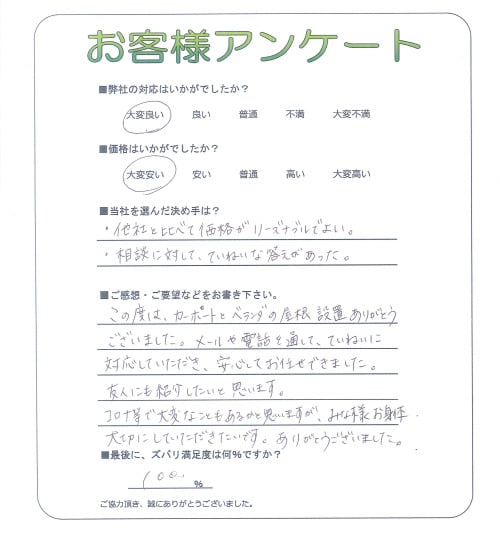 お客様アンケート
■弊社の対応はいかがでしたか？
大変良い 良い 普通 不満 大変不満
■価格はいかがでしたか？
大変安い 安い 普通 高い 大変高い
■当社を選んだ決め手は？
・他社と比べて価格がリーズナブルでよい。
・相談に対して、ていねいな答えがあった。
■ご感想・ご要望などをお書き下さい。
この度は、カーポートとベランダの屋根設置ありがとう
ございました。メールや電話を通して、ていねいに
対応していただき、安心してお任せできました。
友人にも紹介したいと思います。
コロナ等で大変なこともあるかと思いますが、みな様お身体
大切にしていただきたいです。ありがとうございました。
■最後に、ズバリ満足度は何％ですか？
100 %
ご協力頂き、誠にありがとうございました。